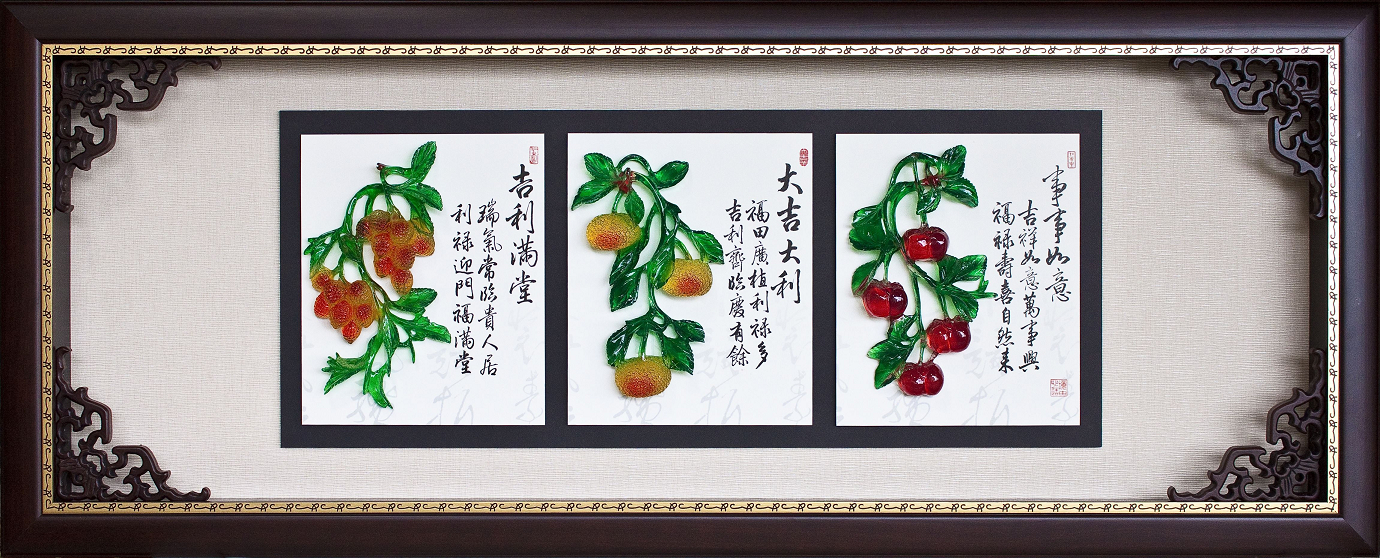 事事如意
吉祥如意萬事興
福禄壽喜自然来
大吉大利
福田廣植利禄多
吉利齊臨慶有餘
吉利满堂
瑞氣常臨貴人居
利禄迎門福满堂